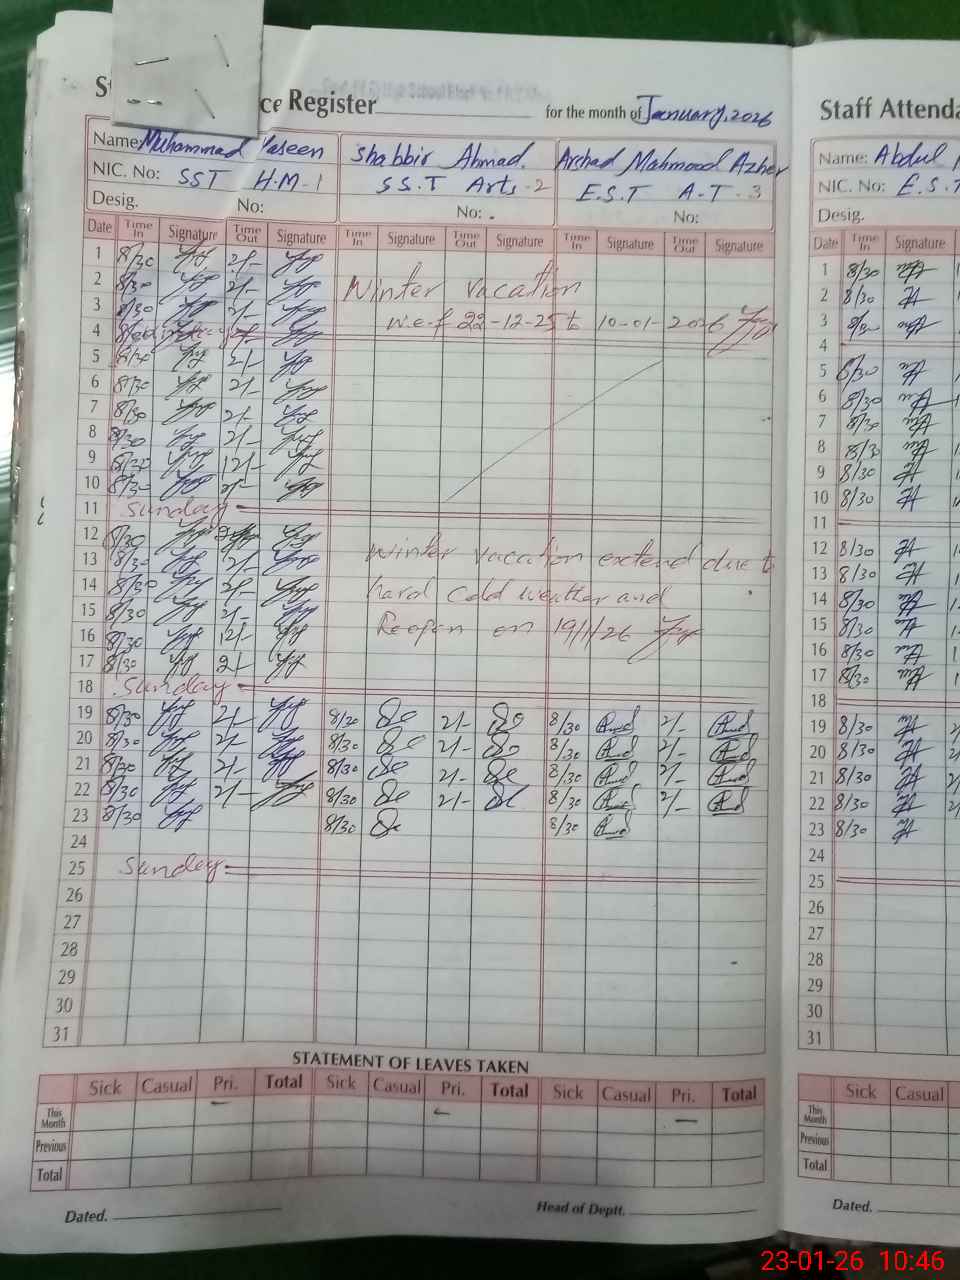 ce Register for the month of January, 2026
Name: Muhammad Yaseen Shabbir Ahmad. Arshad Mahmood Azher
NIC. No: SST H.M-1 S.S.T Arts-2 E.S.T A-T-3
Desig. No: No: No:
Date Time In Signature Time Out Signature Time In Signature Time Out Signature Time In Signature Time Out Signature
1 8/30 2/-
2 8/30 2/- Winter vacation
3 8/30 2/- w.e.f 22-12-25 to 10-01-2026
4
5 8/30 2/-
6 8/30 2/-
7 8/30 2/-
8 8/30 2/-
9 8/30 12/-
10 8/30 2/-
11 Sunday
12 8/30
13 8/30 2/- Winter vacation extend due to
14 8/30 2/- hard cold weather and
15 8/30 2/- Reopen on 19/1/26
16 8/30 12/-
17 8/30 2/-
18 Sunday
19 8/30 2/- 8/30 2/- 8/30 2/-
20 8/30 2/- 8/30 2/- 8/30 2/-
21 8/30 2/- 8/30 2/- 8/30 2/-
22 8/30 2/- 8/30 2/- 8/30 2/-
23 8/30 8/30 8/30
24
25 Sunday
26
27
28
29
30
31
STATEMENT OF LEAVES TAKEN
Sick Casual Pri. Total Sick Casual Pri. Total Sick Casual Pri. Total
This Month
Previous
Total
Dated. Head of Deptt.
Staff Attenda
Name: Abdul
NIC. No: E.S.T
Desig.
Date Time In Signature
1 8/30
2 8/30
3 8/30
4
5 8/30
6 8/30
7 8/30
8 8/30
9 8/30
10 8/30
11
12 8/30
13 8/30
14 8/30
15 8/30
16 8/30
17 8/30
18
19 8/30
20 8/30
21 8/30
22 8/30
23 8/30
24
25
26
27
28
29
30
31
Sick Casual
This Month
Previous
Total
Dated.
23-01-26 10:46